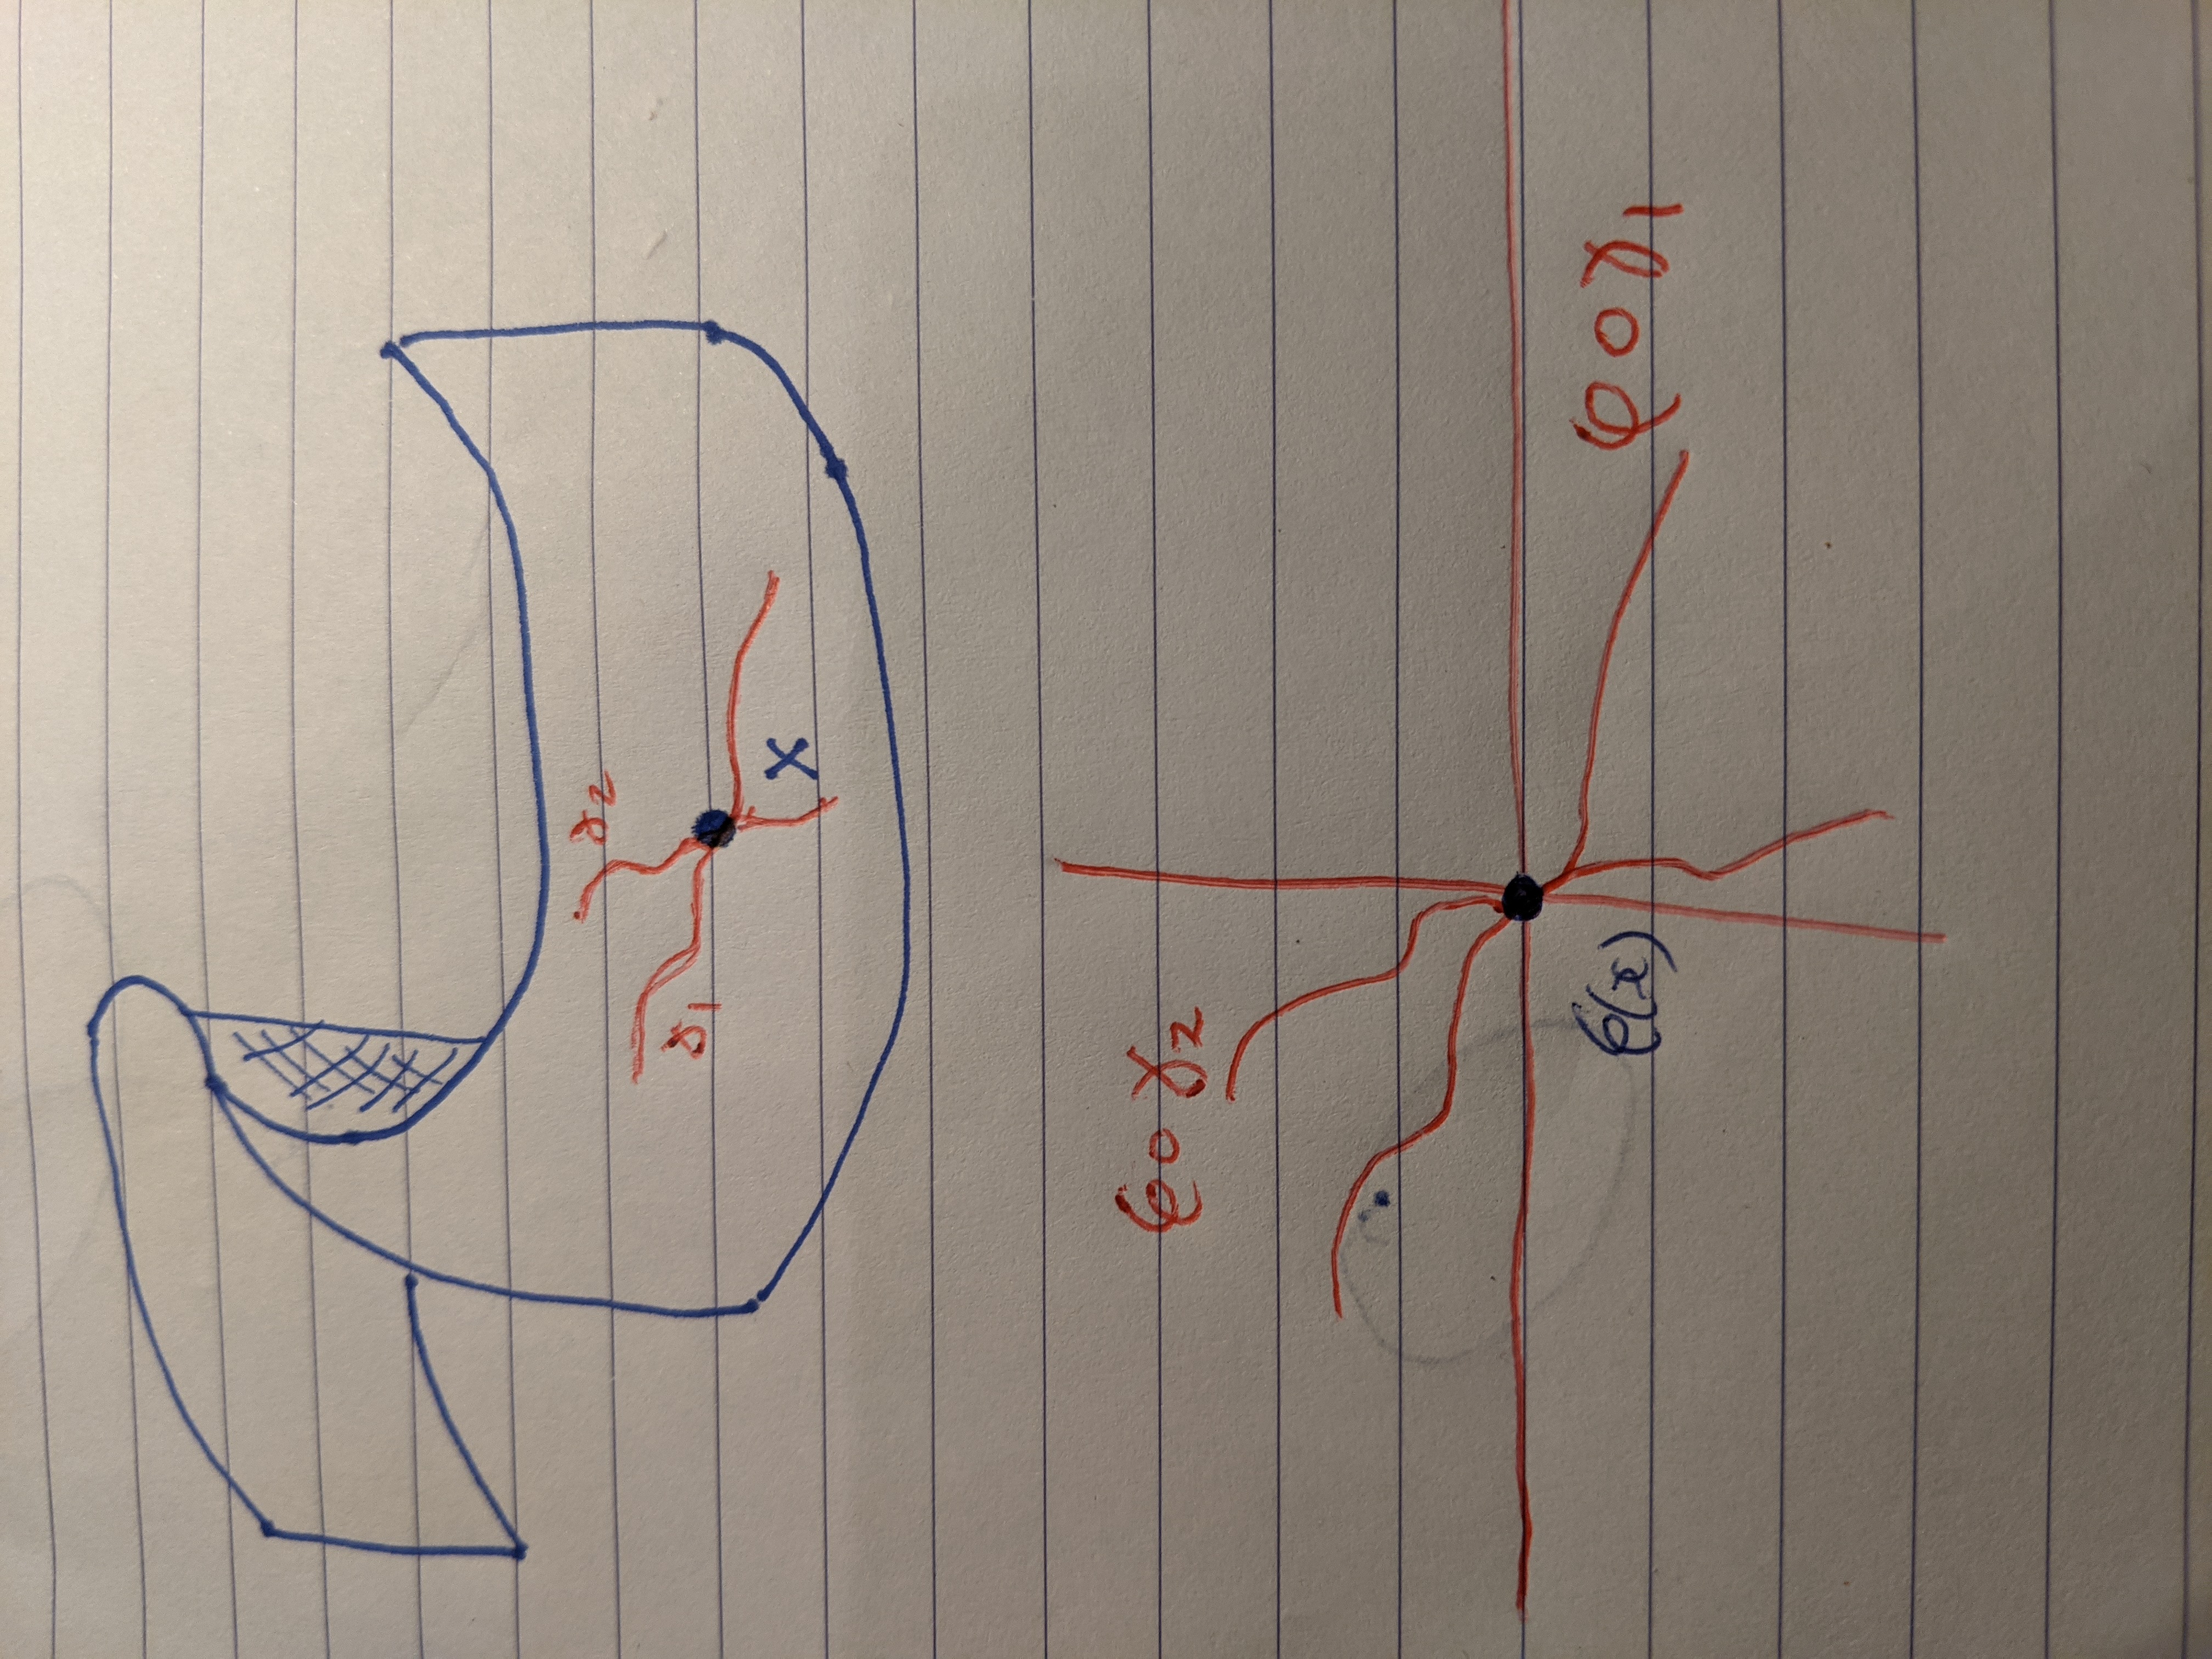 γ₂
γ₁
x
φ∘γ₂
φ(x)
φ∘γ₁